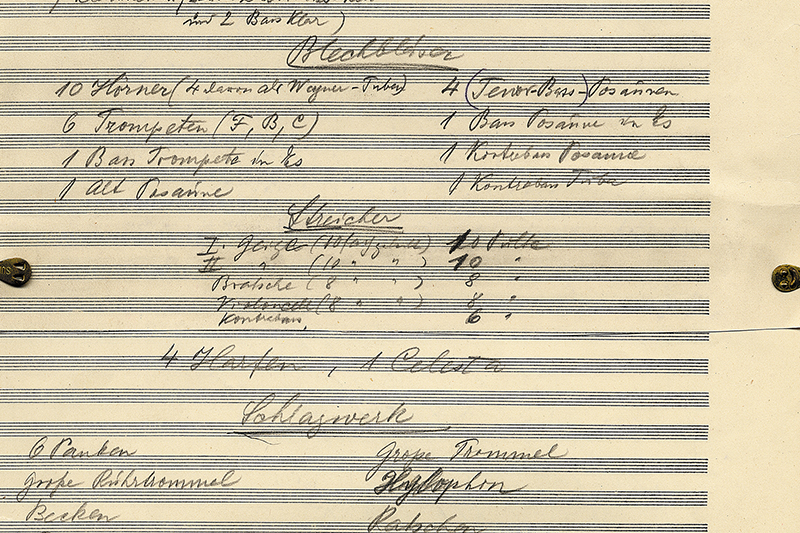 und 2 Bass Klar)
Blechbläser
10 Hörner (4 davon als Wagner-Tuben)
4 (Tenor-Bass-) Posaunen
6 Trompeten (F, B, C)
1 Bass Posaune in Es
1 Bass Trompete in Es
1 Kontrabass Posaune
1 Alt Posaune
1 Kontrabass Tuba
Streicher
I. Geige (10fach geteilt) 10 Pulte
II " (10 " ") 10 "
Bratsche (8 " ") 8 "
Violoncell (8 " ") 8 "
Kontrabass, 6 "
4 Harfen, 1 Celesta
Schlagwerk
6 Pauken
große Trommel
große Rührtrommel
Xylophon
Becken
Ratschen